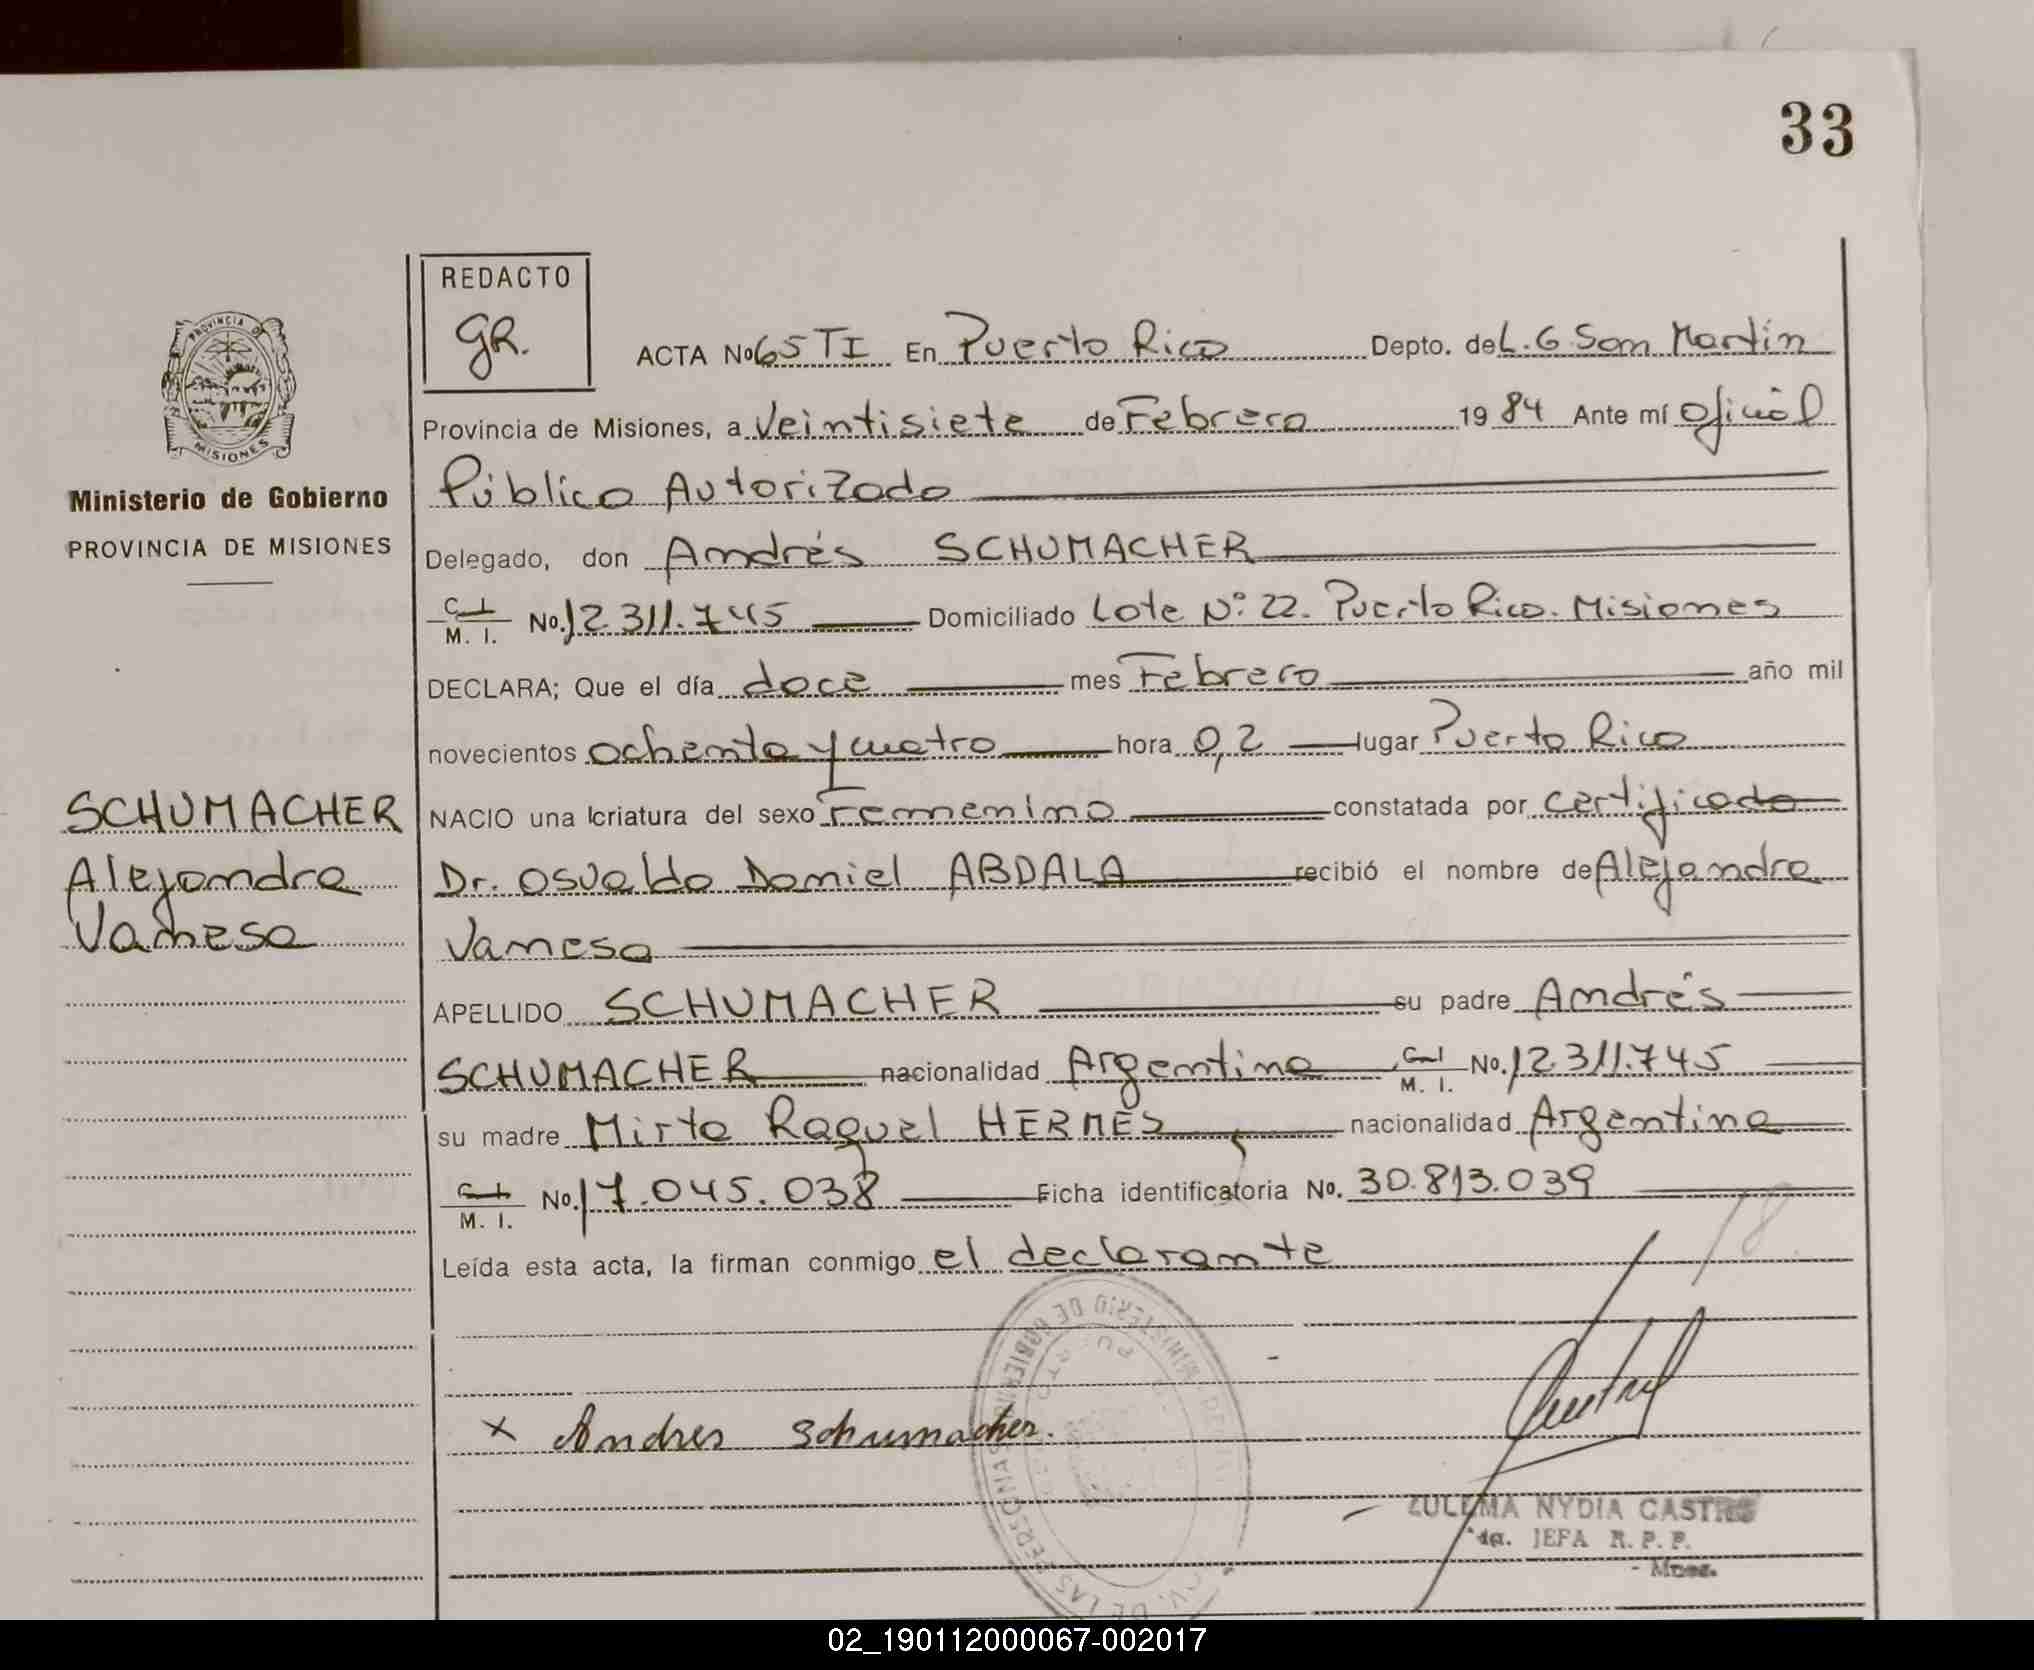 33
REDACTO
gR.
PROVINCIA DE
MISIONES
Ministerio de Gobierno
PROVINCIA DE MISIONES
SCHUMACHER
Alejandra
Vanesa
ACTA No 65 TI En Puerto Rico Depto. de L. G. San Martín
Provincia de Misiones, a Veintisiete de Febrero 19 84 Ante mí Oficial
Público Autorizado
Delegado, don Andrés SCHUMACHER
C. I.
M. I. No. 12.311.745 Domiciliado Lote Nº: 22. Puerto Rico. Misiones
DECLARA; Que el día doce mes Febrero año mil
novecientos ochenta y cuatro hora 0,2 lugar Puerto Rico
NACIO una criatura del sexo Femenino constatada por certificado
Dr. Osvaldo Daniel ABDALA recibió el nombre de Alejandra
Vanesa
APELLIDO SCHUMACHER su padre Andrés
SCHUMACHER nacionalidad Argentina C. I.
M. I. No. 12.311.745
su madre Mirta Raquel HERMES nacionalidad Argentina
C. I.
M. I. No. 17.045.038 Ficha identificatoria No. 30.813.039
Leída esta acta, la firman conmigo el declarante
x Andres Schumacher.
MINISTERIO DE GOBIERNO
ZULEMA NYDIA CASTRO
JEFA R. P. P.
Mnes.
02_190112000067-002017